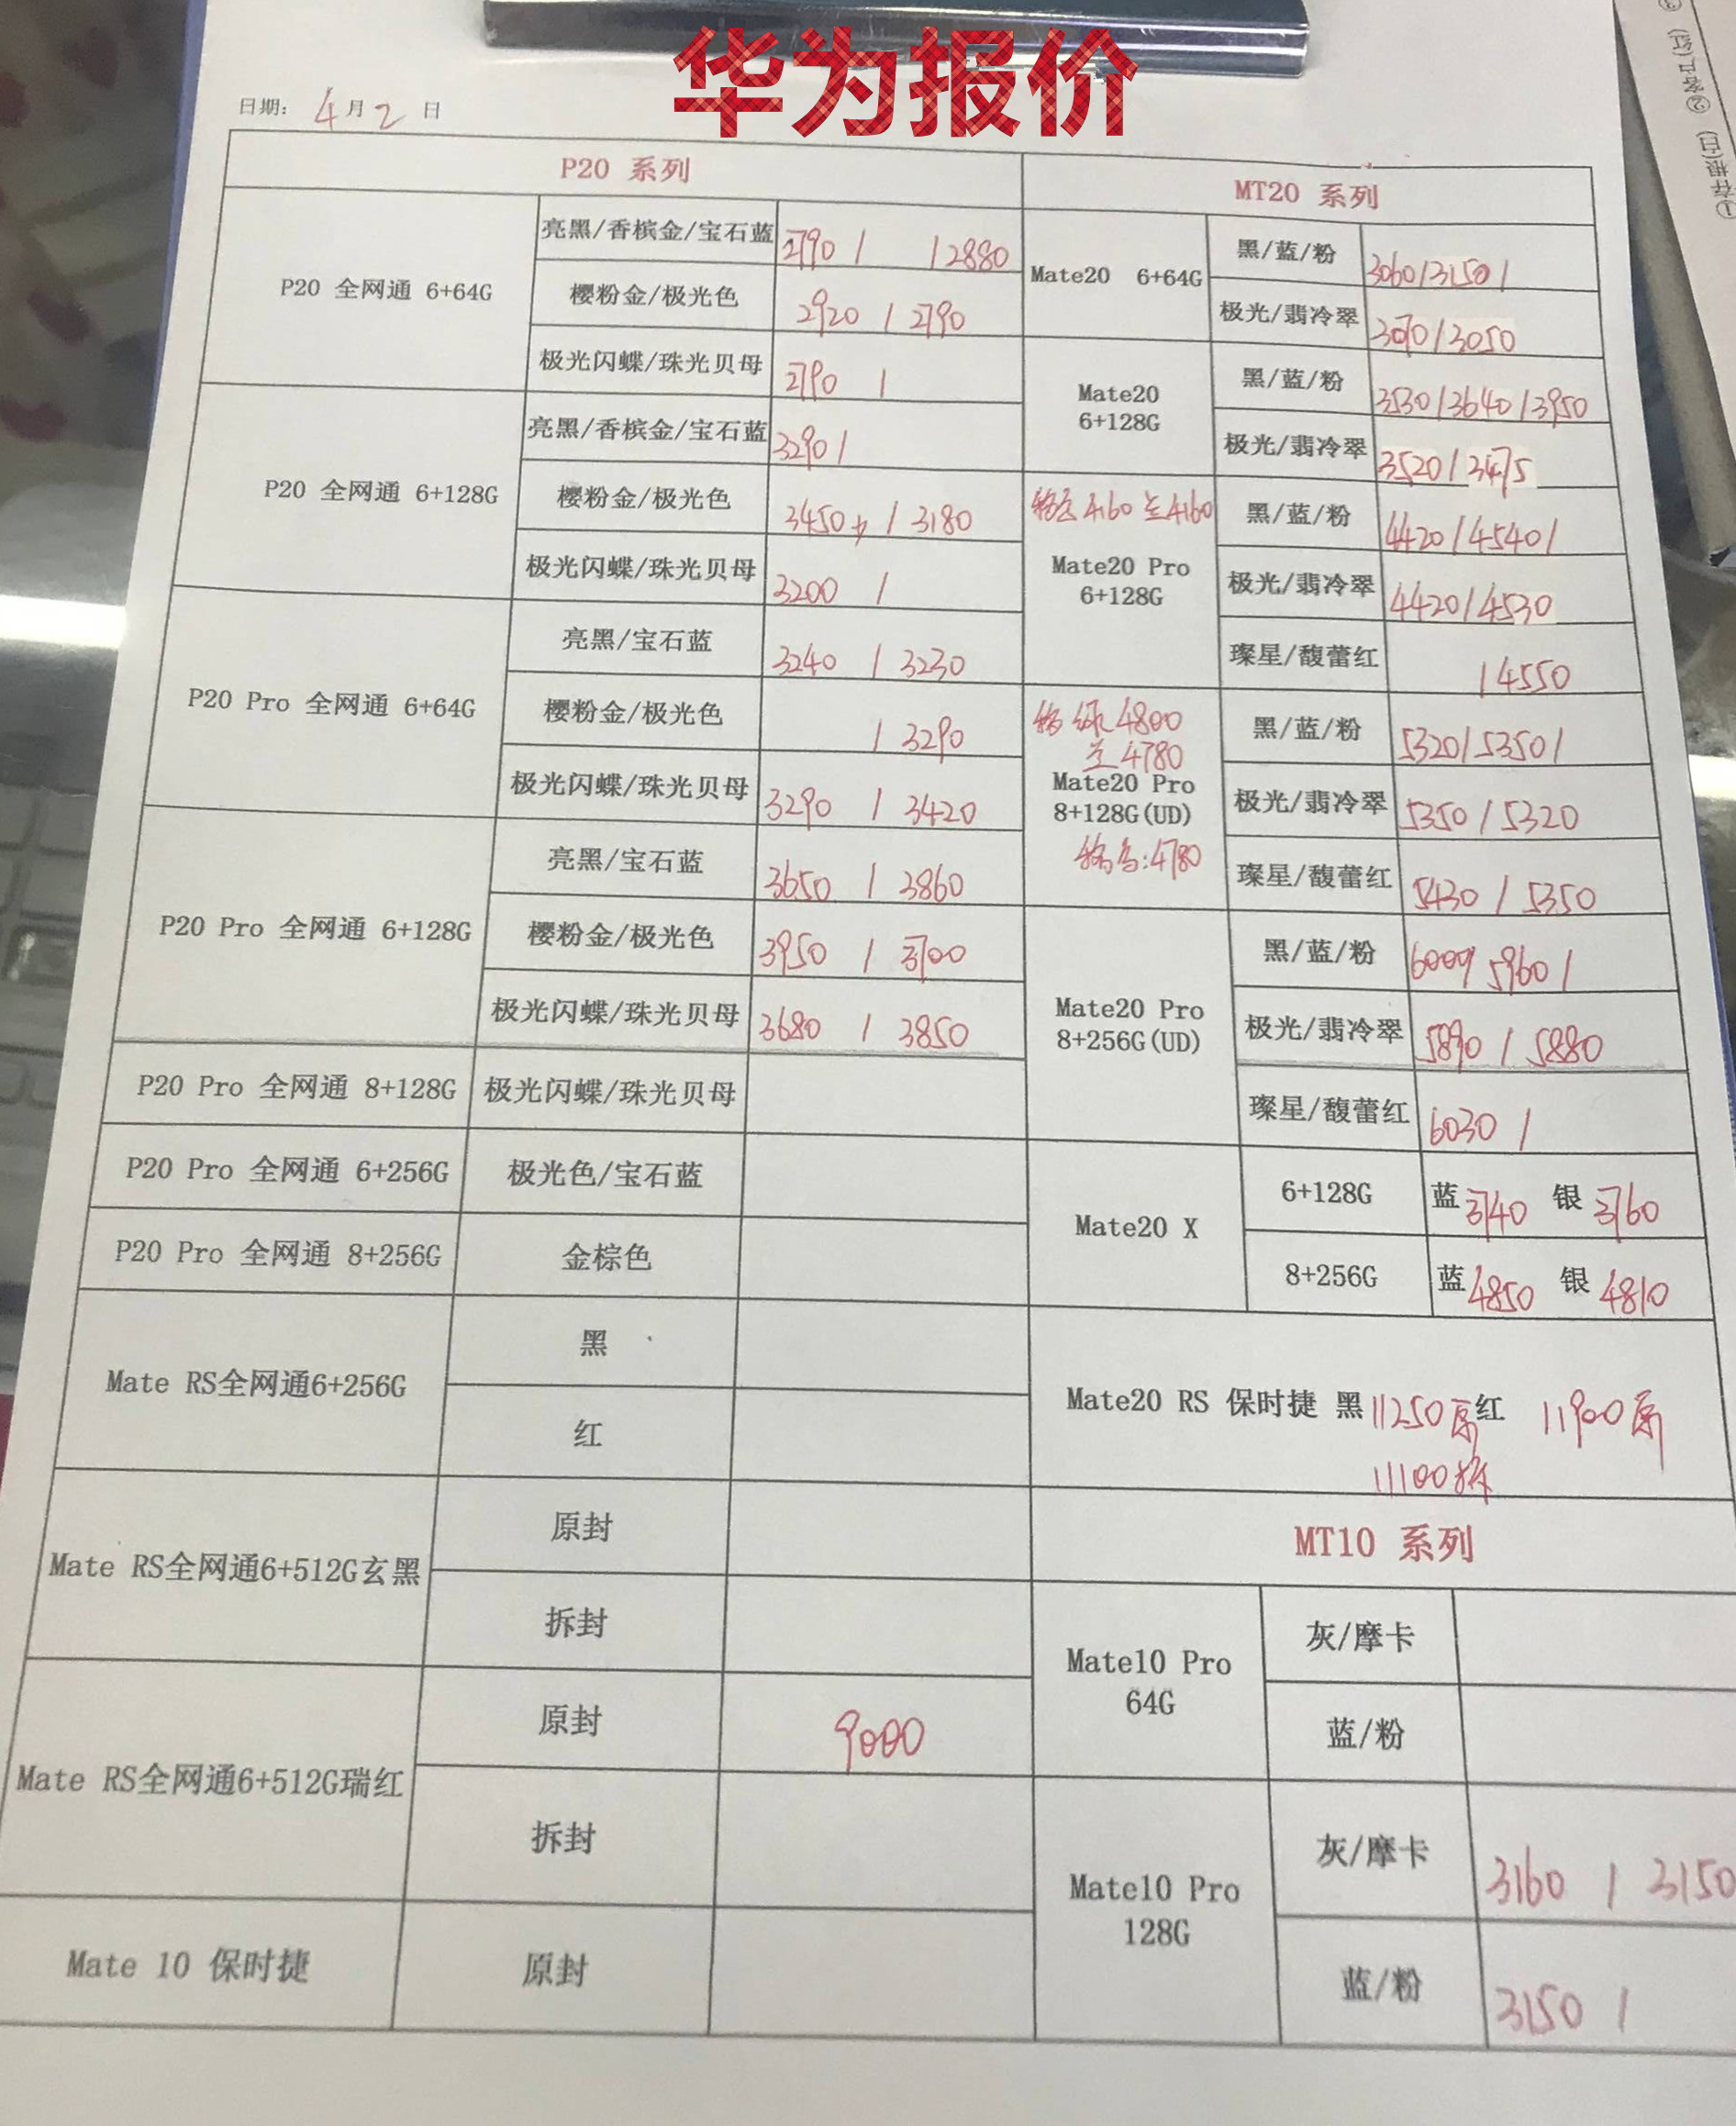 华为报价
日期: 4月2日
P20 系列
P20 全网通 6+64G
亮黑/香槟金/宝石蓝 2790 / /2880
樱粉金/极光色 2920 / 2790
极光闪蝶/珠光贝母 2790 /
P20 全网通 6+128G
亮黑/香槟金/宝石蓝 3290 /
樱粉金/极光色 3450 / 3180
极光闪蝶/珠光贝母 3200 /
P20 Pro 全网通 6+64G
亮黑/宝石蓝 3240 / 3230
樱粉金/极光色 / 3290
极光闪蝶/珠光贝母 3290 / 3420
P20 Pro 全网通 6+128G
亮黑/宝石蓝 3650 / 3860
樱粉金/极光色 3950 / 3700
极光闪蝶/珠光贝母 3680 / 3850
P20 Pro 全网通 8+128G 极光闪蝶/珠光贝母
P20 Pro 全网通 6+256G 极光色/宝石蓝
P20 Pro 全网通 8+256G 金棕色
Mate RS全网通6+256G
黑
红
Mate RS全网通6+512G玄黑
原封
拆封
Mate RS全网通6+512G瑞红
原封 9000
拆封
Mate 10 保时捷 原封
MT20 系列
Mate20 6+64G
黑/蓝/粉 3060/3150/
极光/翡冷翠 3070/3050
Mate20
6+128G
黑/蓝/粉 3530/3640/3950
极光/翡冷翠 3520/3475
4160 兰4160
Mate20 Pro
6+128G
黑/蓝/粉 4420/4540/
极光/翡冷翠 4420/4530
璨星/馥蕾红 /4550
绿4800
兰4780
Mate20 Pro
8+128G(UD)
:4780
黑/蓝/粉 5320/5350/
极光/翡冷翠 5350/5320
璨星/馥蕾红 5430 / 5350
Mate20 Pro
8+256G(UD)
黑/蓝/粉 5960/
极光/翡冷翠 5890 / 5880
璨星/馥蕾红 6030 /
Mate20 X
6+128G 蓝3740 银3760
8+256G 蓝4850 银4810
Mate20 RS 保时捷 黑11250原 红 11900原
11100拆
MT10 系列
Mate10 Pro
64G
灰/摩卡
蓝/粉
Mate10 Pro
128G
灰/摩卡 3160 / 3150
蓝/粉 3150 /